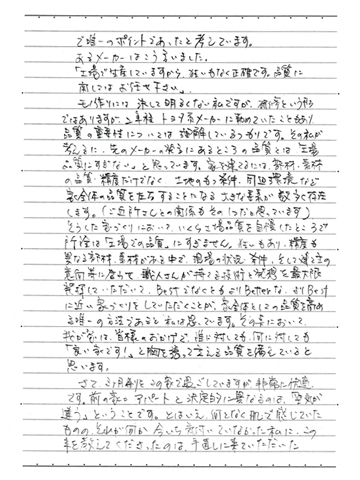 で唯一のポイントであったと考えています。
あるメーカーはこう言いました。
「工場で生産していますから、狂いもなく正確です。品質に
関してはお任せ下さい。」
モノ作りには決して明るくない私ですが、
ではありますが、2年程トヨタ系メーカーに勤めていたこともあり
品質の重要性については理解しているつもりです。その私が
考えるに、先のメーカーの答えにあるところの品質とは「工場
品質にすぎない。」と思っています。家を建てるには、部材・素材
の品質・精度だけでなく、土地のもつ条件、周辺環境など
家全体の品質を左右することになる大きな要素が数多く存在
します。(ご近所さんとの関係もその1つだと思っています)
そうした家づくりにおいて、いくら工場品質を自慢したところで
所詮は「工場での品質」にすぎません。狂いもあり、精度も
異なる部材・素材がある中で、現場の状況・条件、そして建主の
意向等に応えて、職人さんが持てる技術と発想を最大限
発揮していただいて、BestでなくともよりBetterな、よりBest
に近い家づくりをしていただくことが、家全体としての品質を高め
る唯一の方法であると私は思っています。その点において、
我が家は、皆様のおかげで、誰に対しても、何に対しても
「良い家です!」と胸を張って言える品質を備えていると
思います。
さて、3ヶ月余りこの家で過ごしていますが非常に快適
です。前の家のアパートと決定的に異なるのは、「空気が
違う」ということです。とはいえ、何となく肌で感じていた
ものの、それが何か今いち気付いていなかった私に、この
事を教えてくださったのは、手直しに来ていただいた